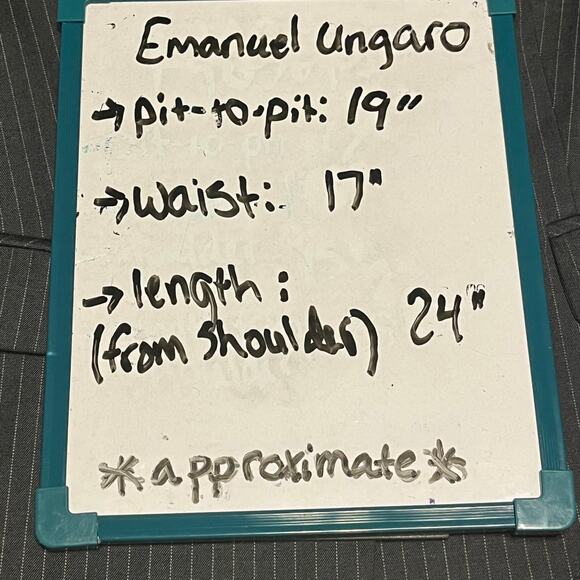 Emanuel Ungaro
→ pit-to-pit: 19"
→ waist: 17"
→ length:
(from shoulder) 24"
*approximate*